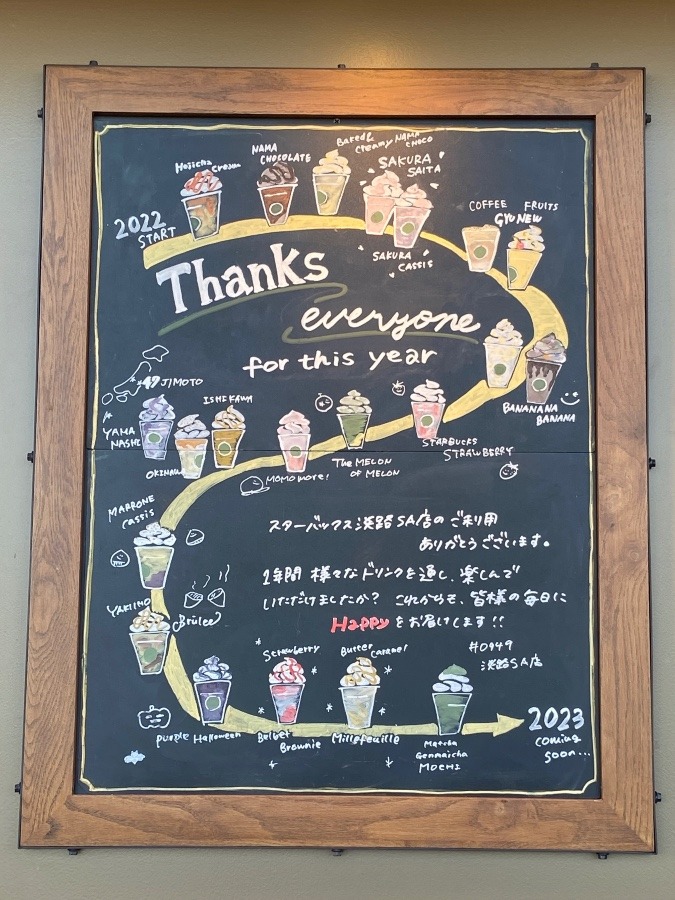 Hojicha Cream
NAMA
CHOCOLATE
Baked &
Creamy NAMA
CHOCO
SAKURA
SAITA
SAKURA
CASSIS
COFFEE FRUITS
GYUNEW
2022
START
Thanks
everyone
for this year
BANANANA
BANANA
47 JIMOTO
ISHIKAWA
YAMA
NASHI
OKINAWA
MOMO more!
The MELON
OF MELON
STARBUCKS
STRAWBERRY
MARRONE
CASSIS
スターバックス淡路SA店のご利用
ありがとうございます。
1年間 様々なドリンクを通し、楽しんで
いただけましたか? これからも、皆様の毎日に
Happyをお届けします!!
#0949
淡路SA店
YAKIIMO
Brulee
Purple Halloween
Strawberry
Belbet
Brownie
Butter
Caramel
Millefeuille
Matcha
Genmaicha
MOCHI
2023
coming
soon...